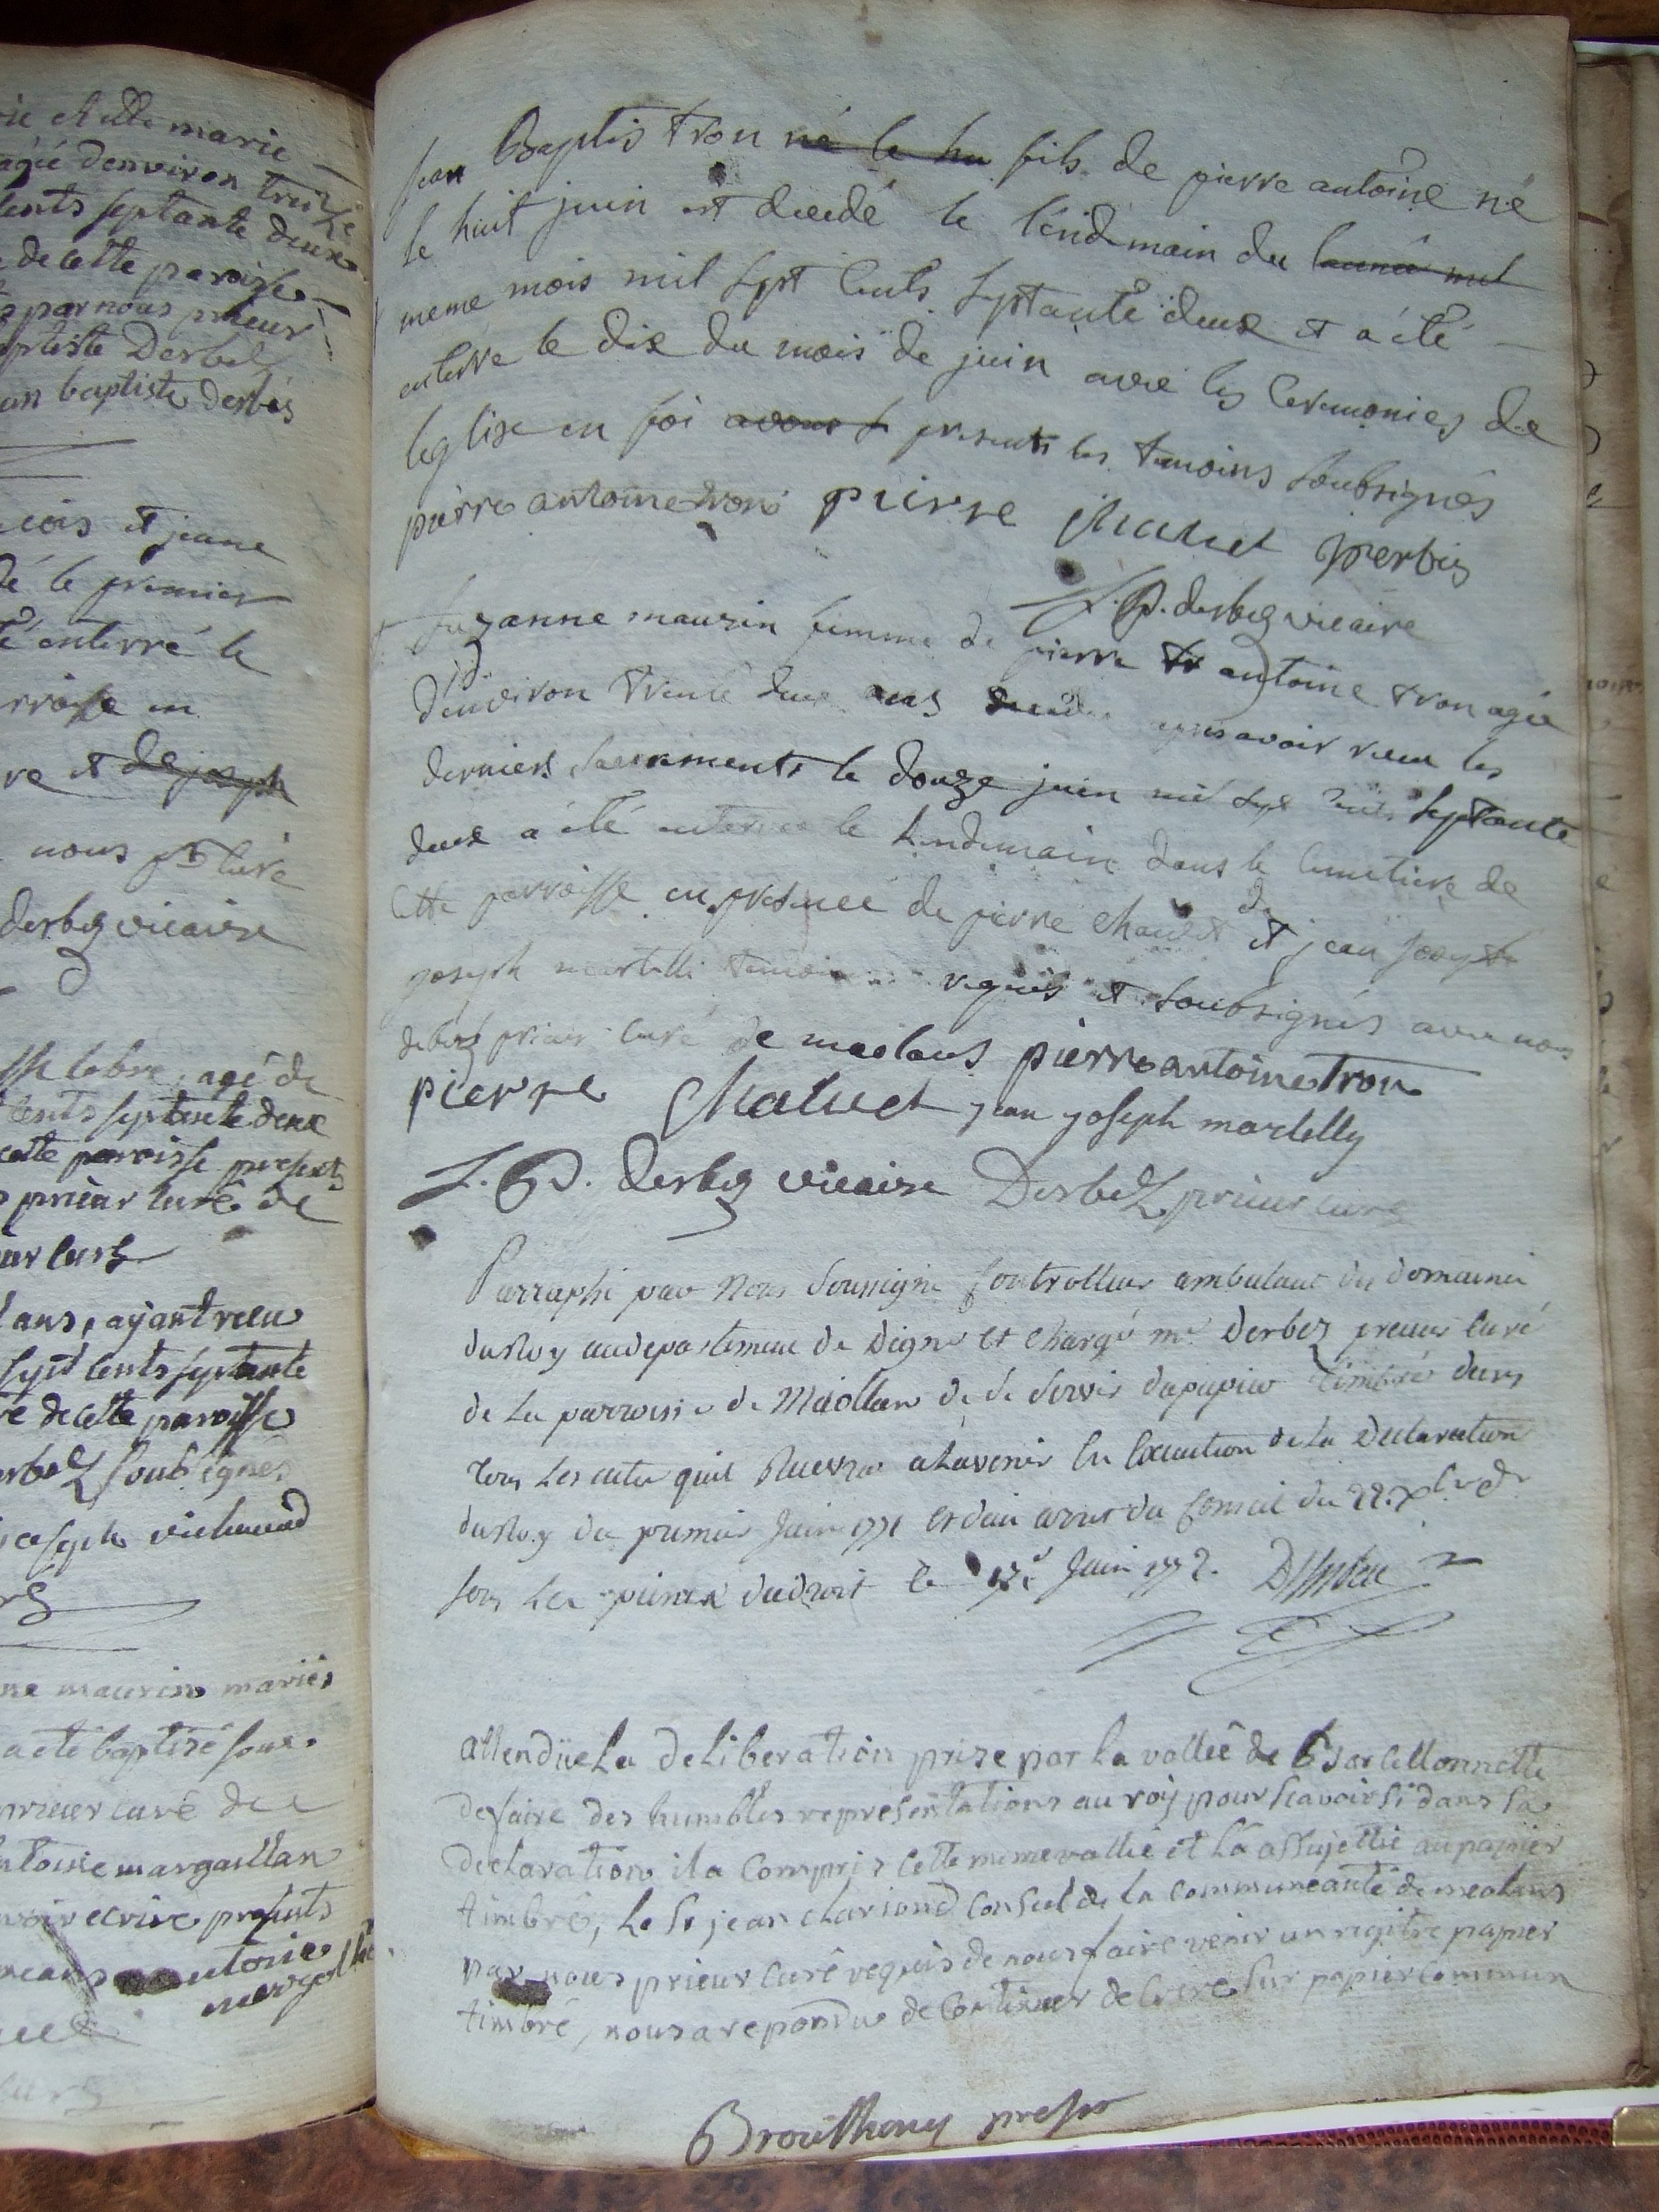 rie et elle marie
agié denviron treize
cents septante deux
de cette paroisse
par nous prieur
aptiste Derbez
an baptiste derbés
cois et jeane
dé le premier
té enterré le
rroisse en
re et de joseph
nous ptr curé
derbez vicaire
agé de
cents septante deux
cette paroisse presents
prieur curé de
ur curé
ans, ayant receu
sept cents septante
re de cette paroisse
erbez soubsignés
joseph
ne maurins mariés
a eté baptizé sous
prieur curé de
antoine margaillan
avoir ecrire presents
means antoine
jean Baptis tron né le hu fils de pierre antoine né
le huit juin est decedé le lendemain du lannée mil
meme mois mil sept cents septante deux et a été
enterré le dix du mois de juin avec les ceremonies de
leglise en foi avons s presents les temoins soubsignés
pierre antoine tron pierre chaluet Jperbis
J. P. derbez vicaire
suzanne maurin femme de pierre tr antoine tron agée
d'environ trente deux ans decedée apres avoir receu les
derniers sacrements le douze juin mil sept cents septante
deux a été enterrée le lendemain dans le cimetiere de
cette parroisse en presence de pierre chaluet de et jean josept
joseph martelli temoins requis et soubsignés avec nous
debez prieur curé de meolans pierre antoine tron
pierre chaluet jean joseph martelly
J. P. derbez vicaire Derbez prieur curé
Parraphé par Nous soussigné Controlleur ambulant des domaines
du Roy au departement de Digne et chargé mr Derbez prieur curé
de la parroisse de Méollans de se servir de papier timbré dans
tous les actes quil Recevra a lavenir en Execution de la Declaration
du Roy du premier Juin 1771 et d'un arret du Conseil du 22. Xbre dr
sous les peines de droit le 17e Juin 1772.
attendüe La deliberation prize par la vallée de Barcellonnette
de faire des humbles representations au roy pour scavoir si dans sa
declaration il a compris cette meme vallée et l'a assujettie au papier
timbré, Le Sr jean clariond consul de la communeauté de meolans
par nous prieur curé requis de nous faire venir un registre papier
timbré, nous a repondu de continuer decrire sur papier commun